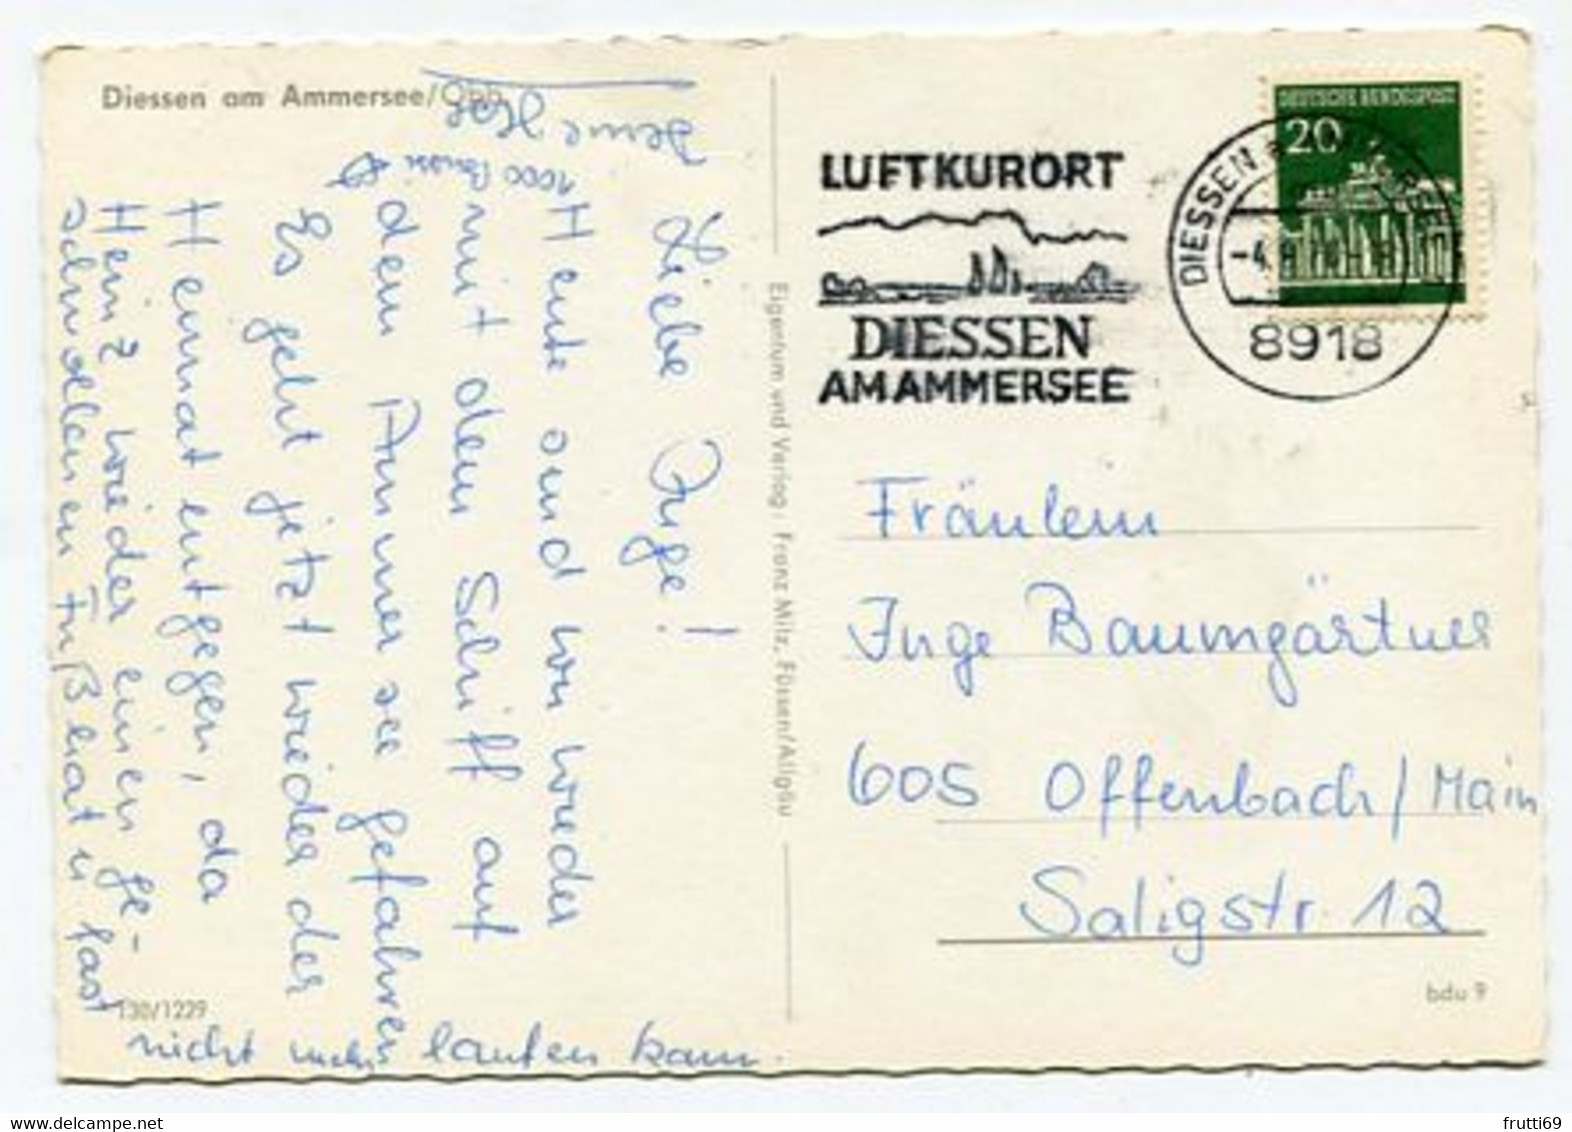 Diessen am Ammersee/Obb.
Liebe Inge!
Heute sind wir wieder
mit dem Schiff auf
dem Ammersee gefahren
Es geht jetzt wieder der
Heimat entgegen, da
Heinz wieder einen ge-
schwollenen Fuß hat u. fast
nicht mehr laufen kann.
1000 Bussi
Deine
130/1229
Eigentum und Verlag: Franz Milz, Füssen/Allgäu
LUFTKURORT
DIESSEN
AM AMMERSEE
DIESSEN
8918
DEUTSCHE BUNDESPOST
20
Fräulein
Inge Baumgärtner
605 Offenbach/Main
Saligstr. 12
bdu 9
frutti69